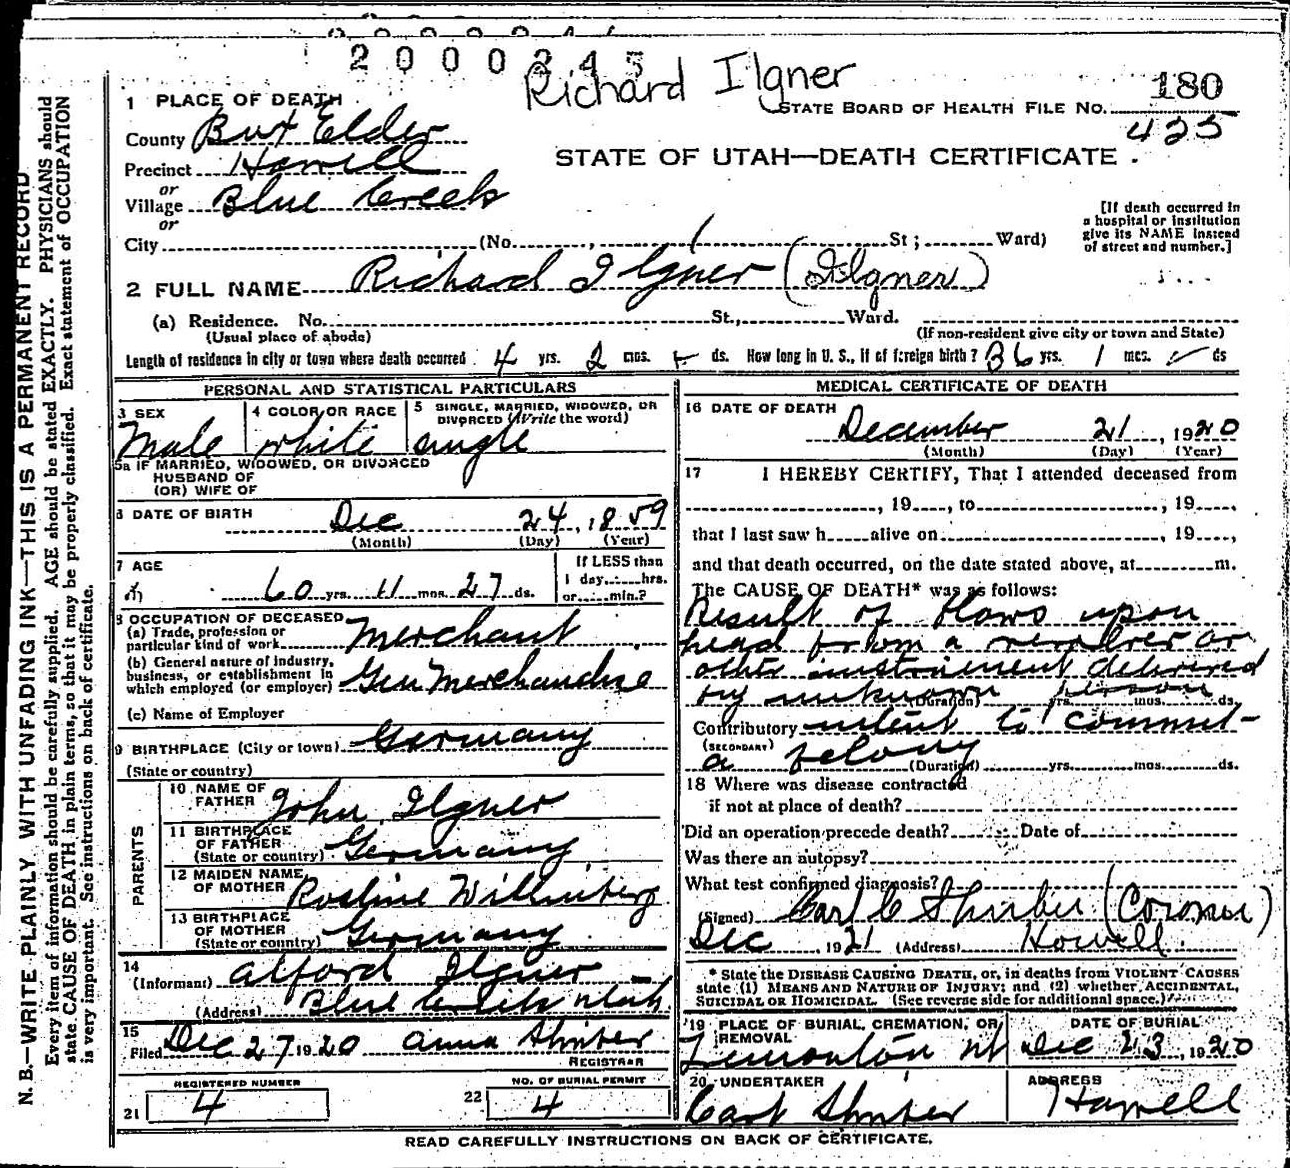 2000345
Richard Ilgner
180
1 PLACE OF DEATH
STATE BOARD OF HEALTH FILE No.
425
County Box Elder
Precinct Howell
STATE OF UTAH—DEATH CERTIFICATE.
or
Village Blue Creek
or
City (No. , St; Ward)
[If death occurred in a hospital or institution give its NAME instead of street and number.]
2 FULL NAME Richard Ilgner (Ilgner)
(a) Residence. No. St., Ward.
(Usual place of abode) (If non-resident give city or town and State)
Length of residence in city or town where death occurred 4 yrs. 2 mos. ds. How long in U. S., if of foreign birth? 36 yrs. 1 mos. ds
PERSONAL AND STATISTICAL PARTICULARS
3 SEX 4 COLOR OR RACE 5 SINGLE, MARRIED, WIDOWED, OR DIVORCED (Write the word)
Male white single
5a IF MARRIED, WIDOWED, OR DIVORCED
HUSBAND OF
(OR) WIFE OF
6 DATE OF BIRTH Dec 24, 1859
(Month) (Day) (Year)
7 AGE
60 yrs. 11 mos. 27 ds.
If LESS than
1 day, hrs.
or min.?
8 OCCUPATION OF DECEASED
(a) Trade, profession or
particular kind of work Merchant
(b) General nature of industry,
business, or establishment in
which employed (or employer) Gen Merchandise
(c) Name of Employer
9 BIRTHPLACE (City or town) Germany
(State or country)
PARENTS
10 NAME OF
FATHER John Ilgner
11 BIRTHPLACE
OF FATHER
(State or country) Germany
12 MAIDEN NAME
OF MOTHER Rosline
13 BIRTHPLACE
OF MOTHER
(State or country) Germany
14
(Informant) Alford Ilgner
(Address) Blue Creek Utah
15
Filed Dec 27 1920 Anna
REGISTRAR
REGISTERED NUMBER
21 4
NO. OF BURIAL PERMIT
22 4
MEDICAL CERTIFICATE OF DEATH
16 DATE OF DEATH
December 21, 1920
(Month) (Day) (Year)
17 I HEREBY CERTIFY, That I attended deceased from
, 19 , to , 19 ,
that I last saw h alive on , 19 ,
and that death occurred, on the date stated above, at m.
The CAUSE OF DEATH* was as follows:
Result of blows upon
head from a revolver or
other instrument delivered
by unknown person
(Duration) yrs. mos. ds.
Contributory intent to commit
(SECONDARY) a felony
(Duration) yrs. mos. ds.
18 Where was disease contracted
if not at place of death?
Did an operation precede death? Date of
Was there an autopsy?
What test confirmed diagnosis?
(Signed) Carl C (Coroner)
Dec , 1921 (Address) Howell.
* State the DISEASE CAUSING DEATH, or, in deaths from VIOLENT CAUSES
state (1) MEANS AND NATURE OF INJURY; and (2) whether ACCIDENTAL,
SUICIDAL or HOMICIDAL. (See reverse side for additional space.)
19 PLACE OF BURIAL, CREMATION, OR
REMOVAL
DATE OF BURIAL
Dec 23, 1920
20 UNDERTAKER
Carl
ADDRESS
Howell
READ CAREFULLY INSTRUCTIONS ON BACK OF CERTIFICATE.
N. B.—WRITE PLAINLY WITH UNFADING INK—THIS IS A PERMANENT RECORD
Every item of information should be carefully supplied. AGE should be stated EXACTLY. PHYSICIANS should
state CAUSE OF DEATH in plain terms, so that it may be properly classified. Exact statement of OCCUPATION
is very important. See instructions on back of certificate.